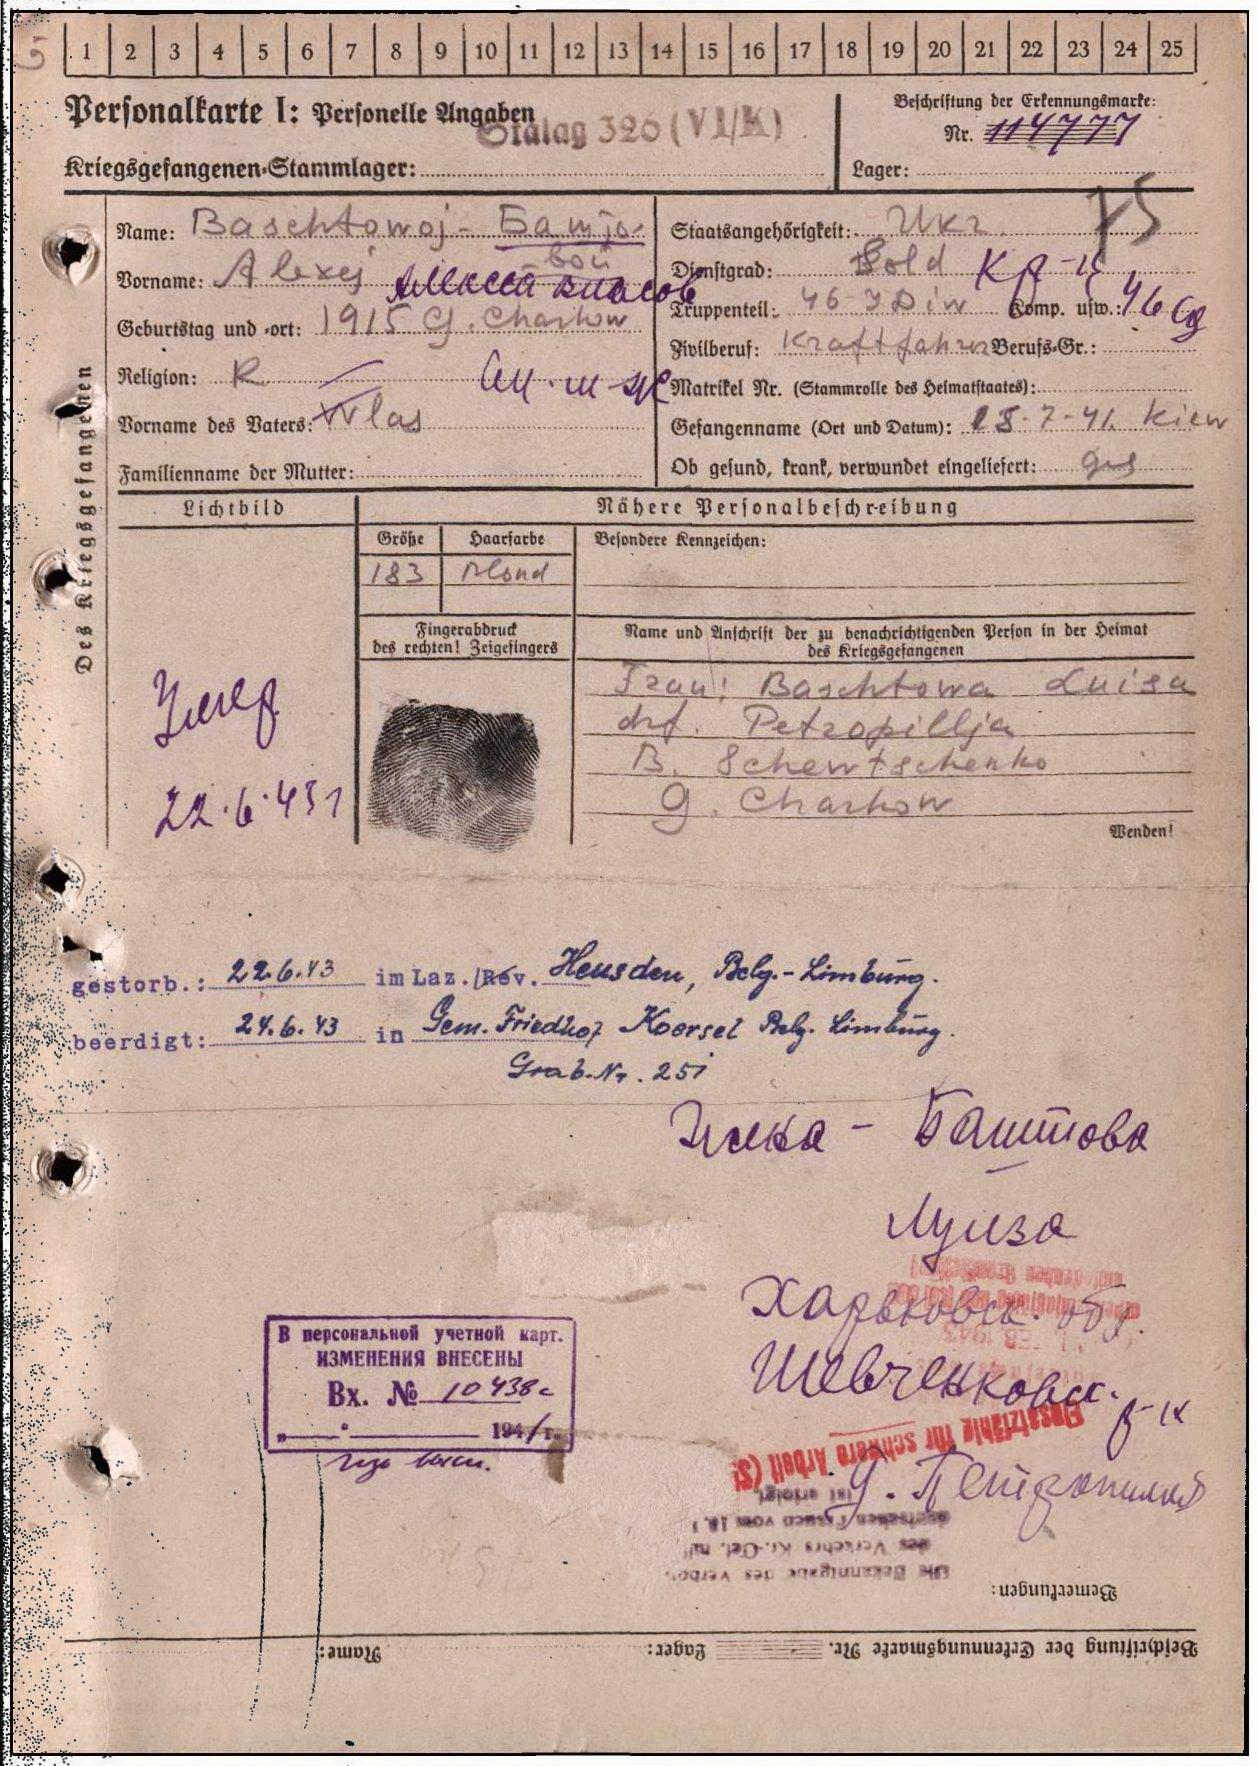 1 2 3 4 5 6 7 8 9 10 11 12 13 14 15 16 17 18 19 20 21 22 23 24 25
Personalkarte I: Personelle Angaben
Stalag 326 (VI/K)
Kriegsgefangenen-Stammlager:
Beschriftung der Erkennungsmarke:
Nr. 114777
Lager:
Des Kriegsgefangenen
Name: Baschtowoj - Баштовой
Vorname: Alexej
Алексей Власов
Geburtstag und -ort: 1915 G. Charkow
Religion: R.
Vorname des Vaters: Wlas
Familienname der Mutter:
Staatsangehörigkeit: Ukr.
Dienstgrad: Sold Кр-ц
Truppenteil: 46 J Div Komp. usw.: 46 сд
Zivilberuf: Kraftfahrer Berufs-Gr.:
Matrikel Nr. (Stammrolle des Heimatstaates):
Gefangenname (Ort und Datum): 15-7-41. Kiew
Ob gesund, krank, verwundet eingeliefert: ges
Lichtbild
Nähere Personalbeschreibung
Größe Haarfarbe
183 blond
Besondere Kennzeichen:
Fingerabdruck
des rechten! Zeigefingers
Name und Anschrift der zu benachrichtigenden Person in der Heimat
des Kriegsgefangenen
Frau: Baschtowa Luisa
drf. Petropillja
B. Schewtschenko
G. Charkow
Wenden!
Умер
22.6.43 г
gestorb.: 22.6.43 im Laz./Rev. Heusden, Belg.-Limburg.
beerdigt: 24.6.43 in Gem. Friedhof Koersel Belg. Limburg.
Grab-Nr. 251
Жена - Баштова
Луиза
Харьковск. обл.
Шевченковск. р-н
Петропилля
В персональной учетной карт.
ИЗМЕНЕНИЯ ВНЕСЕНЫ
Вх. № 10438с
„ “ 194 г.
Einsatzfähig für schwere Arbeit (S)
ist erfolgt.
Die Bekanntgabe des Verbots
des Verkehrs Kr.-Gef. mit
deutschen Frauen vom
Bemerkungen:
Beschriftung der Erkennungsmarke Nr. Lager: Name: